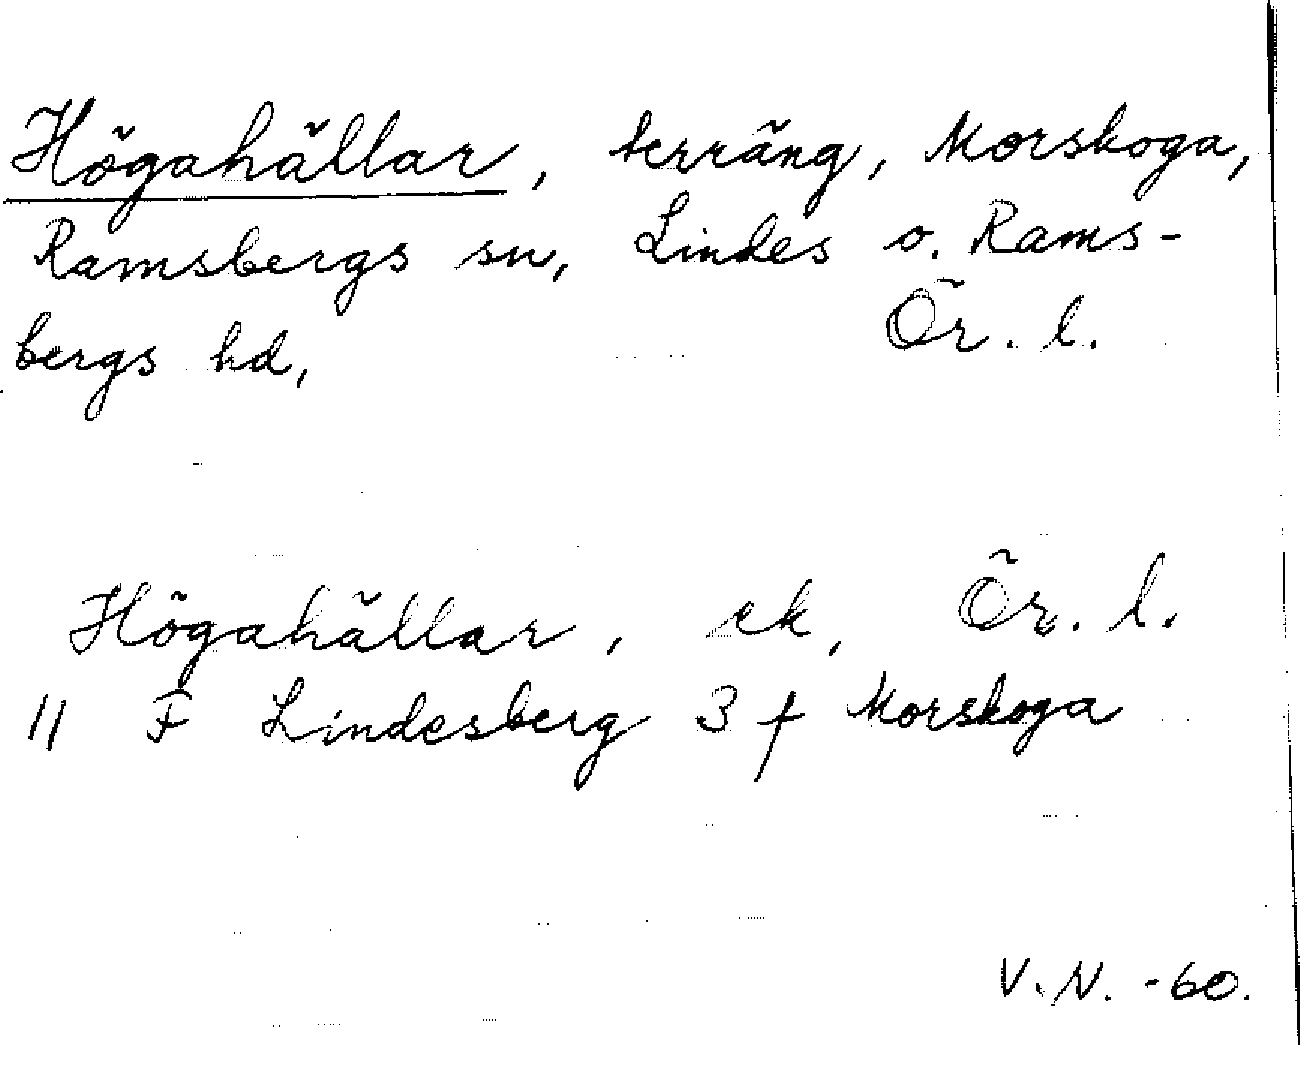 Högahällar, terräng, Morskoga,
Ramsbergs sn, Lindes o. Rams-
bergs hd, Ör. l.
Högahällar, ek, Ör. l.
11 F Lindesberg 3 f Morskoga
V.N. -60.